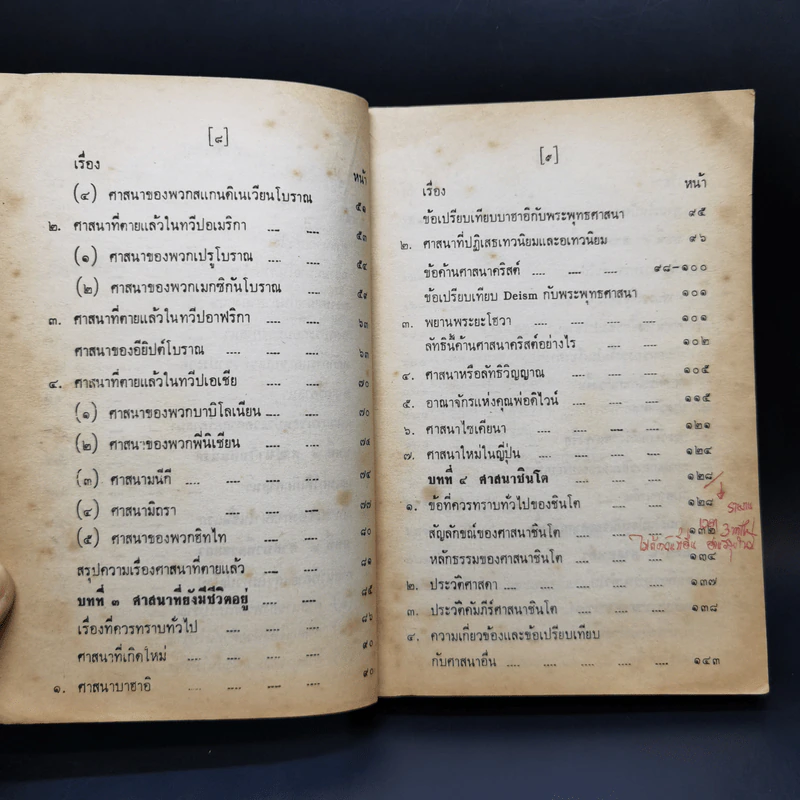 [๘]
เรื่อง หน้า
(๔) ศาสนาของพวกสแกนดิเนเวียนโบราณ ๕๑
๒. ศาสนาที่ตายแล้วในทวีปอเมริกา .... .... ๕๓
(๑) ศาสนาของพวกเปรูโบราณ .... .... ๕๔
(๒) ศาสนาของพวกเมกซิกันโบราณ .... ๕๙
๓. ศาสนาที่ตายแล้วในทวีปอาฟริกา .... ๖๓
ศาสนาของอียิปต์โบราณ .... .... ๖๓
๔. ศาสนาที่ตายแล้วในทวีปเอเซีย .... .... ๗๐
(๑) ศาสนาของพวกบาบิโลเนียน .... .... ๗๐
(๒) ศาสนาของพวกพี่นิเซียน .... ....
(๓) ศาสนามนีกี .... .... .... ๗๔
(๔) ศาสนามิถรา .... .... .... ๗๗
(๕) ศาสนาของพวกฮิทไท .... .... ๘๐
สรุปความเรื่องศาสนาที่ตายแล้ว .... .... ๘๑
บทที่ ๓ ศาสนาที่ยังมีชีวิตอยู่ .... .... ๘๕
เรื่องที่ควรทราบทั่วไป .... .... .... ๘๖
ศาสนาที่เกิดใหม่ .... .... .... ๙๐
๑. ศาสนาบาฮาอิ .... .... .... ๙๐
[๙]
เรื่อง หน้า
ข้อเปรียบเทียบบาฮาอิกับพระพุทธศาสนา ๙๕
๒. ศาสนาที่ปฏิเสธเทวนิยมและอเทวนิยม ๙๖
ข้อค้านศาสนาคริสต์ .... .... .... ๙๘-๑๐๐
ข้อเปรียบเทียบ Deism กับพระพุทธศาสนา ๑๐๑
๓. พยานพระยะโฮวา .... .... .... .... ๑๐๑
ลัทธินี้ค้านศาสนาคริสต์อย่างไร .... .... ๑๐๒
๔. ศาสนาหรือลัทธิวิญญาณ .... .... .... ๑๐๕
๕. อาณาจักรแห่งคุณพ่อดิไวน์ .... .... .... ๑๑๕
๖. ศาสนาไซเคียนา .... .... .... .... ๑๒๑
๗. ศาสนาใหม่ในญี่ปุ่น .... .... .... .... ๑๒๔
บทที่ ๔ ศาสนาชินโต .... .... .... ๑๒๘
๑. ข้อที่ควรทราบทั่วไปของชินโต .... .... ๑๒๘
สัญลักษณ์ของศาสนาชินโต .... .... ๑๓๒
หลักธรรมของศาสนาชินโต .... .... ๑๓๔
๒. ประวัติศาสดา .... .... .... .... ๑๓๗
๓. ประวัติคัมภีร์ศาสนาชินโต .... .... .... ๑๓๘
๔. ความเกี่ยวข้องและข้อเปรียบเทียบ
กับศาสนาอื่น .... .... .... .... ๑๔๓